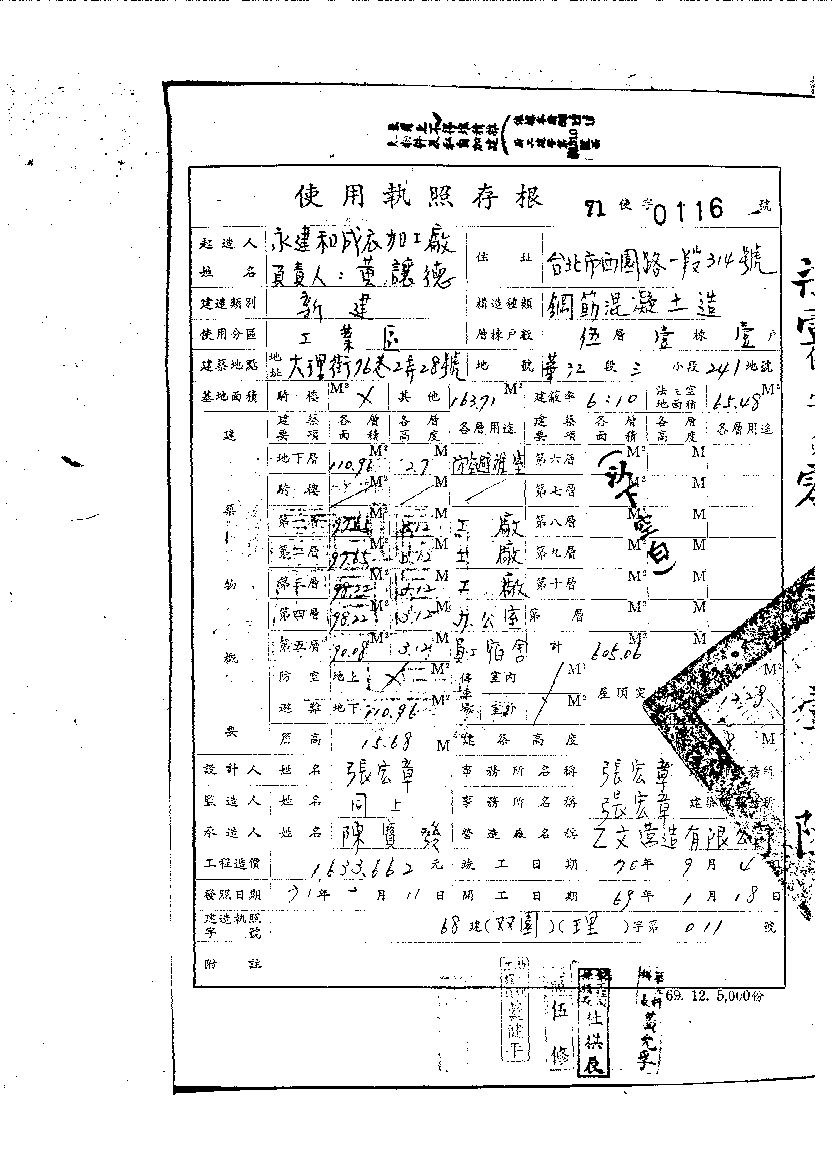 使用執照存根 71 使字 0116 號
起造人姓名 永建和成衣加工廠 負責人：黃讓德 住址 台北市西園路一段314號
建造類別 新建 構造種類 鋼筋混凝土造
使用分區 工業區 層棟戶數 伍層壹棟壹戶
建築地點 地址 大理街76巷2弄28號 地號 華江段三小段241地號
基地面積 騎樓 M² 其他 163.71 M² 建蔽率 6:10 法定空地面積 65.48 M²
建築物概要
建築要項 各層面積 各層高度 各層用途 建築要項 各層面積 各層高度 各層用途
地下層 110.96 M² 2.7 M 防空避難室 第六層 M² M
騎樓 M² M 第七層 M² M
(以下空白)
第一層 M² 3.12 M 工廠 第八層 M² M
第二層 97.65 M² 3.12 M 工廠 第九層 M² M
第三層 98.22 M² 3.12 M 工廠 第十層 M² M
第四層 98.22 M² 3.12 M 办公室 第 層 M² M
第五層 90.08 M² 3.12 M 員工宿舍 計 605.06 M²
防空避難 地上 M² 停車場 室內 M² 屋頂突
地下 110.96 M² 室外 M²
簷高 15.68 M 建築高度 M
設計人 姓名 張宏章 事務所名稱 張宏章
監造人 姓名 同上 事務所名稱 張宏章
承造人 姓名 陳寶發 營造廠名稱 乙文營造有限公司
工程造價 1,633,662 元 竣工日期 70年9月4日
發照日期 71年 月11日 開工日期 69年1月18日
建造執照字號 68建(双園)(理)字第011號
附註
69. 12. 5,000份
伍修
杜拱辰